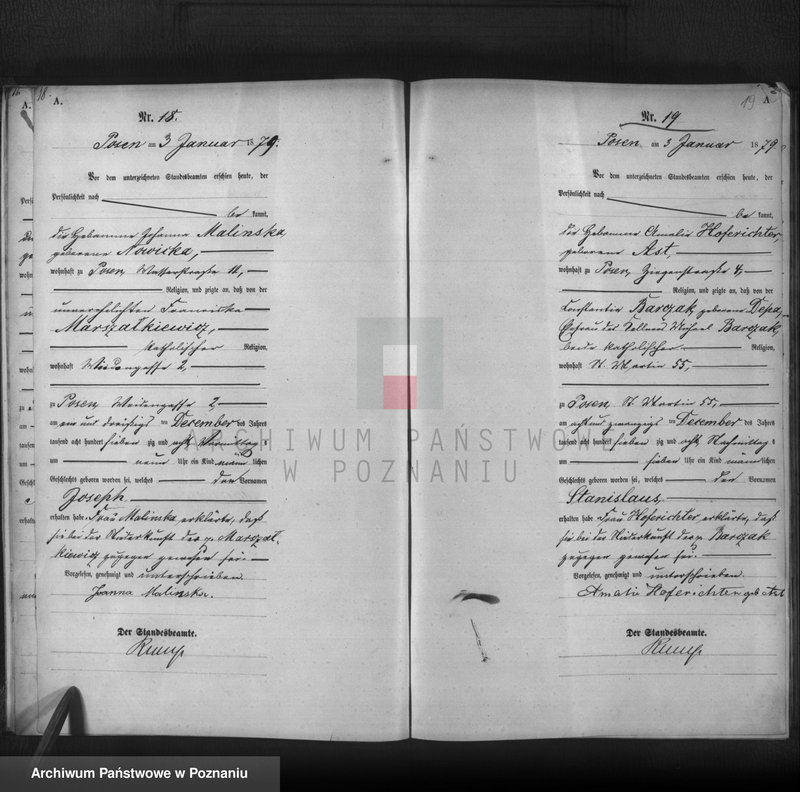 18.
A.
Nr. 18.
Posen am 3 Januar 1879.
Vor dem unterzeichneten Standesbeamten erschien heute, der
Persönlichkeit nach
be kannt,
die Hebamme Johanna Malinska
geborene Nowicka,
wohnhaft zu Posen, Wasserstraße 11,
Religion, und zeigte an, daß von der
unverehelichten Franciska
Marszalkiewicz,
katholischer Religion,
wohnhaft Weidengasse 2,
zu Posen, Weidengasse 2
am ein und dreißigs ten December des Jahres
tausend acht hundert sieben zig und acht Vormittags
um neun Uhr ein Kind männ lichen
Geschlechts geboren worden sei, welches den Vornamen
Joseph
erhalten habe. Frau Malinska erklärte, daß
sie bei der Niederkunft der p. Marszal-
kiewicz zugegen gewesen sei.
Vorgelesen, genehmigt und unterschrieben.
Joanna Malinska.
Der Standesbeamte.
19
A
Nr. 19
Posen am 3 Januar 1879
Vor dem unterzeichneten Standesbeamten erschien heute, der
Persönlichkeit nach
be kannt,
die Hebamme Amalie Hoferichter,
geborene Ast,
wohnhaft zu Posen, Ziegenstraße 4,
Religion, und zeigte an, daß von der
Constantia Barczak geborene Depa,
Ehefrau des Kellners Michael Barczak,
beide katholischer Religion,
wohnhaft St. Martin 55,
zu Posen, St. Martin 55,
am acht und zwanzigs ten December des Jahres
tausend acht hundert sieben zig und acht Nachmittags
um sieben Uhr ein Kind männ lichen
Geschlechts geboren worden sei, welches den Vornamen
Stanislaus
erhalten habe. Frau Hoferichter erklärte, daß
sie bei der Niederkunft der p. Barczak
zugegen gewesen sei.
Vorgelesen, genehmigt und unterschrieben.
Amalie Hoferichter geb Ast
Der Standesbeamte.
ARCHIWUM PAŃSTWOWE
W POZNANIU
Archiwum Państwowe w Poznaniu